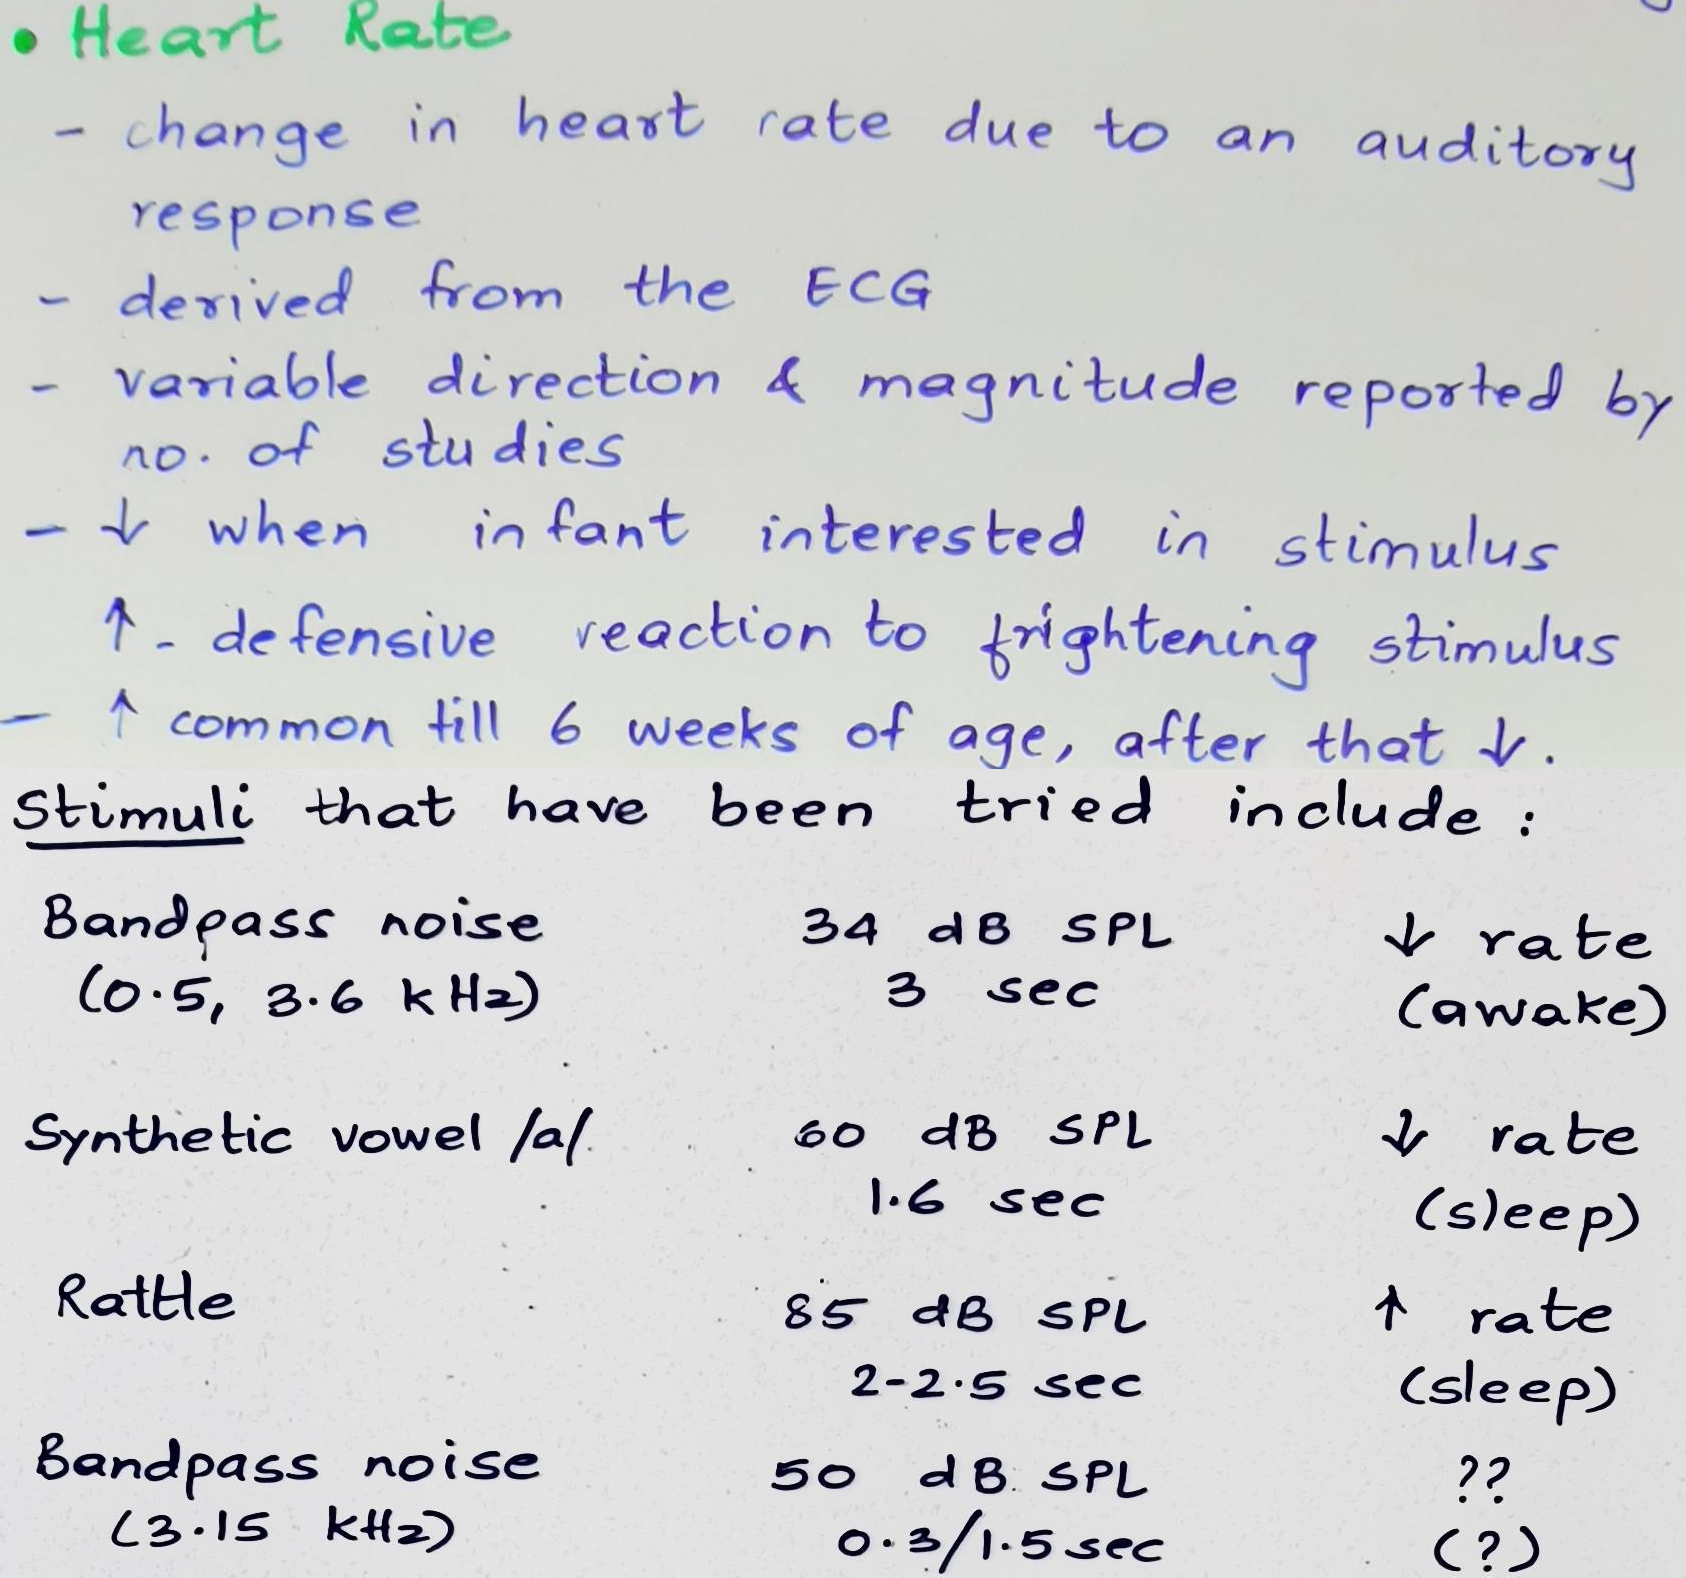 • Heart Rate
- change in heart rate due to an auditory
response
- derived from the ECG
- variable direction & magnitude reported by
no. of studies
- ↓ when infant interested in stimulus
↑ - defensive reaction to frightening stimulus
- ↑ common till 6 weeks of age, after that ↓.
Stimuli that have been tried include :
Bandpass noise 34 dB SPL ↓ rate
(0.5, 3.6 kHz) 3 sec (awake)
Synthetic vowel /a/. 60 dB SPL ↓ rate
1.6 sec (sleep)
Rattle 85 dB SPL ↑ rate
2-2.5 sec (sleep)
Bandpass noise 50 dB SPL ??
(3.15 kHz) 0.3/1.5 sec (?)